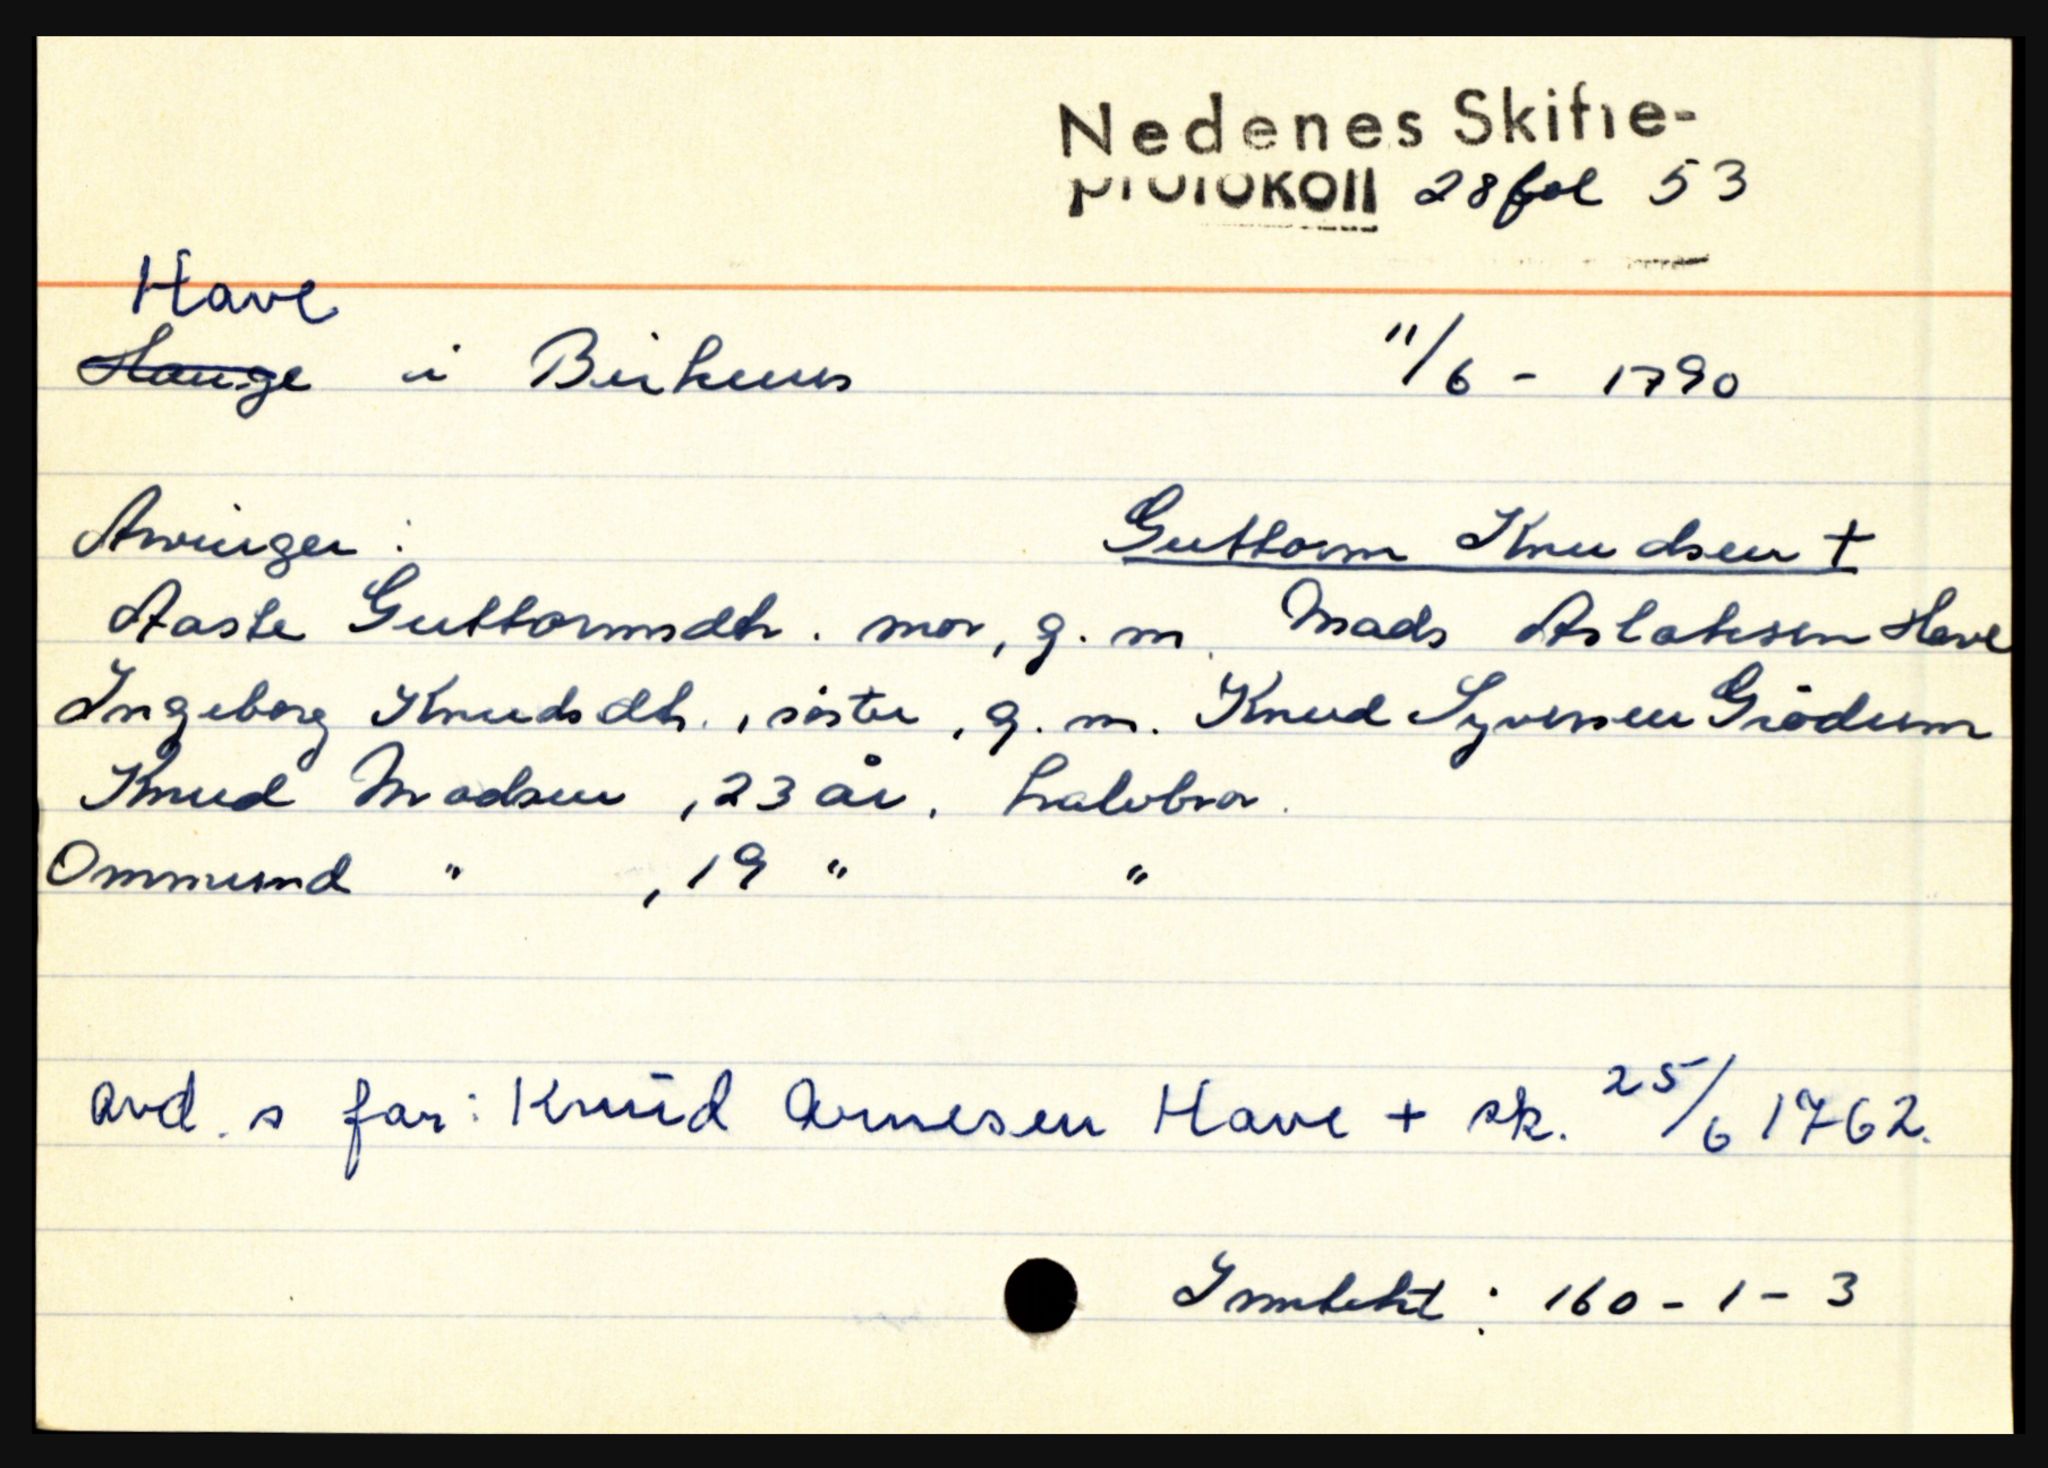 Nedenes Skifte-
protokoll 28 fol 53
Have
Hauge i Birkenes 11/6 - 1790
Arvinger : Guttorm Knudsen +
Aaste Guttormsdtr. mor, g. m. Mads Aslaksen Have
Ingeborg Knudsdtr., søster, g. m. Knud Syversen Giödum
Knud Madsen , 23 år, halvbror.
Ommund " , 19 " "
avd. s far: Knud Arnesen Have + sk. 25/6 1762.
Inntekt : 160 - 1 - 3